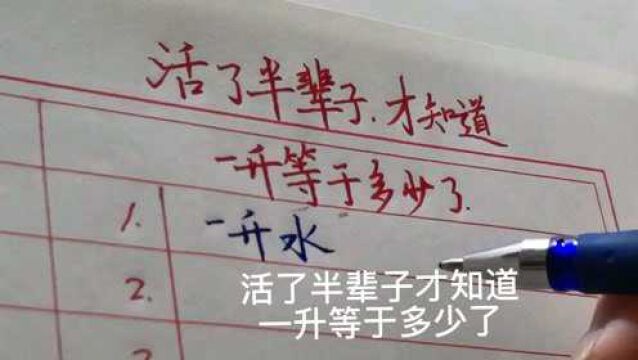 活了半辈子,才知道
一升等于多少了.
1. 一升水
2.
活了半辈子才知道
一升等于多少了